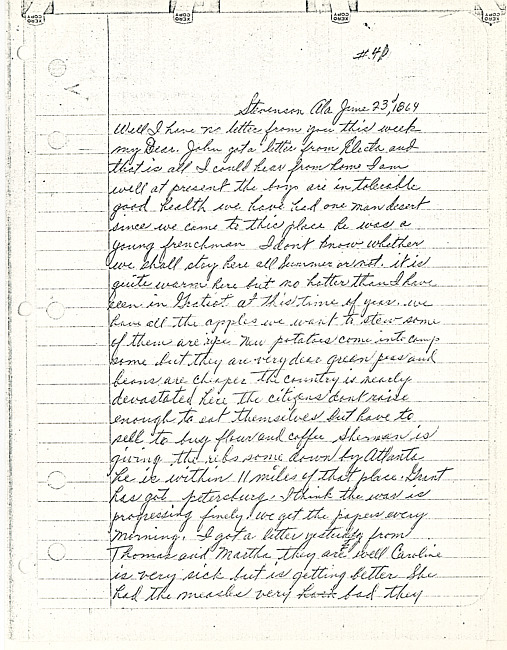 #40
Stevenson Ala June 23, 1864
Well I have no letter from you this week
my Dear. John got a letter from Electa and
that is all I could hear from home I am
well at present the boys are in tolerable
good health we have had one man desert
since we came to this place he was a
young frenchman I dont know whether
we shall stay here all Summer or not. it is
quite warm here but no hotter than I have
seen in at this time of year. we
have all the apples we want to stew some
of them are ripe New potatoes come into camp
some but they are very dear green peas and
beans are cheaper the country is nearly
devastated here the citizens dont raise
enough to eat themselves but have to
sell to buy flour and coffee Sherman is
giving the rebs some down by Atlanta
he is within 11 miles of that place. Grant
has got petersburg. I think the war is
progressing finely. we get the papers every
morning. I got a letter yesterday from
Thomas and Martha they are well Caroline
is very sick but is getting better She
had the measles very bad they